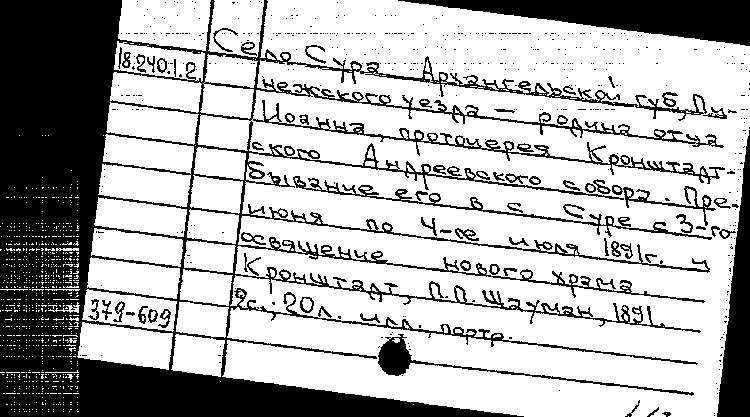 Село Сура Архангельской губ, Пи-
18.240.1.2.
нежского уезда — родина отца
Иоанна, протоиерея Кронштадт-
ского Андреевского собора. Пре-
бывание его в с. Суре с 3-го
июня по 4-ое июля 1891г. и
освящение нового храма.
Кронштадт, П.П. Шауман, 1891.
2с.; 20л. илл., портр.
379-609